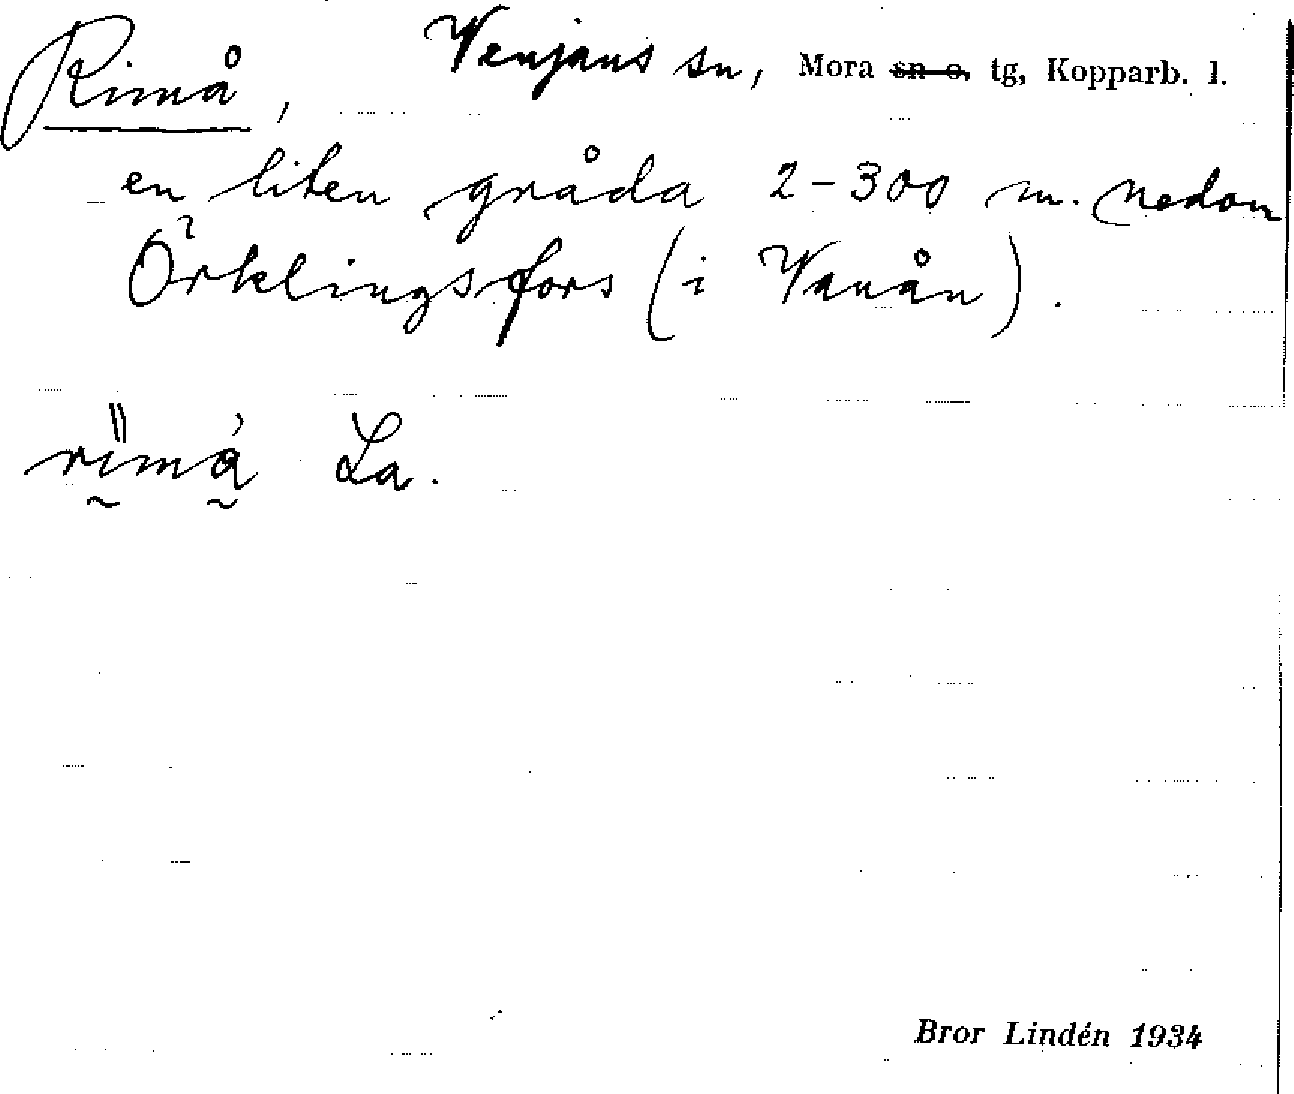 Rimå, Venjans sn, Mora sn o. tg, Kopparb. l.
en liten gråda 2-300 m. nedom
Örklingsfors (i Vanån).
rimá La.
Bror Lindén 1934